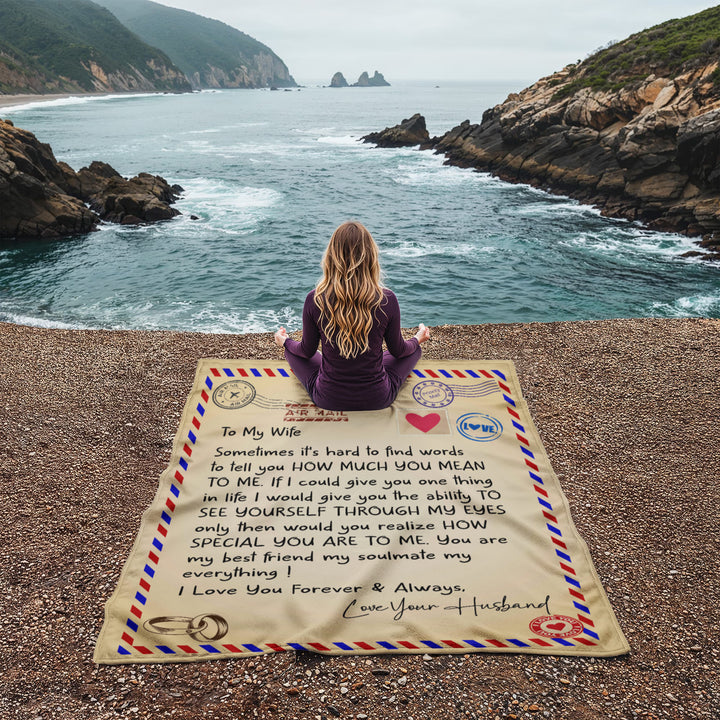 AIR MAIL
LOVE
To My Wife
Sometimes it's hard to find words
to tell you HOW MUCH YOU MEAN
TO ME. If I could give you one thing
in life I would give you the ability TO
SEE YOURSELF THROUGH MY EYES
only then would you realize HOW
SPECIAL YOU ARE TO ME. You are
my best friend my soulmate my
everything !
I Love You Forever & Always,
Love Your Husband